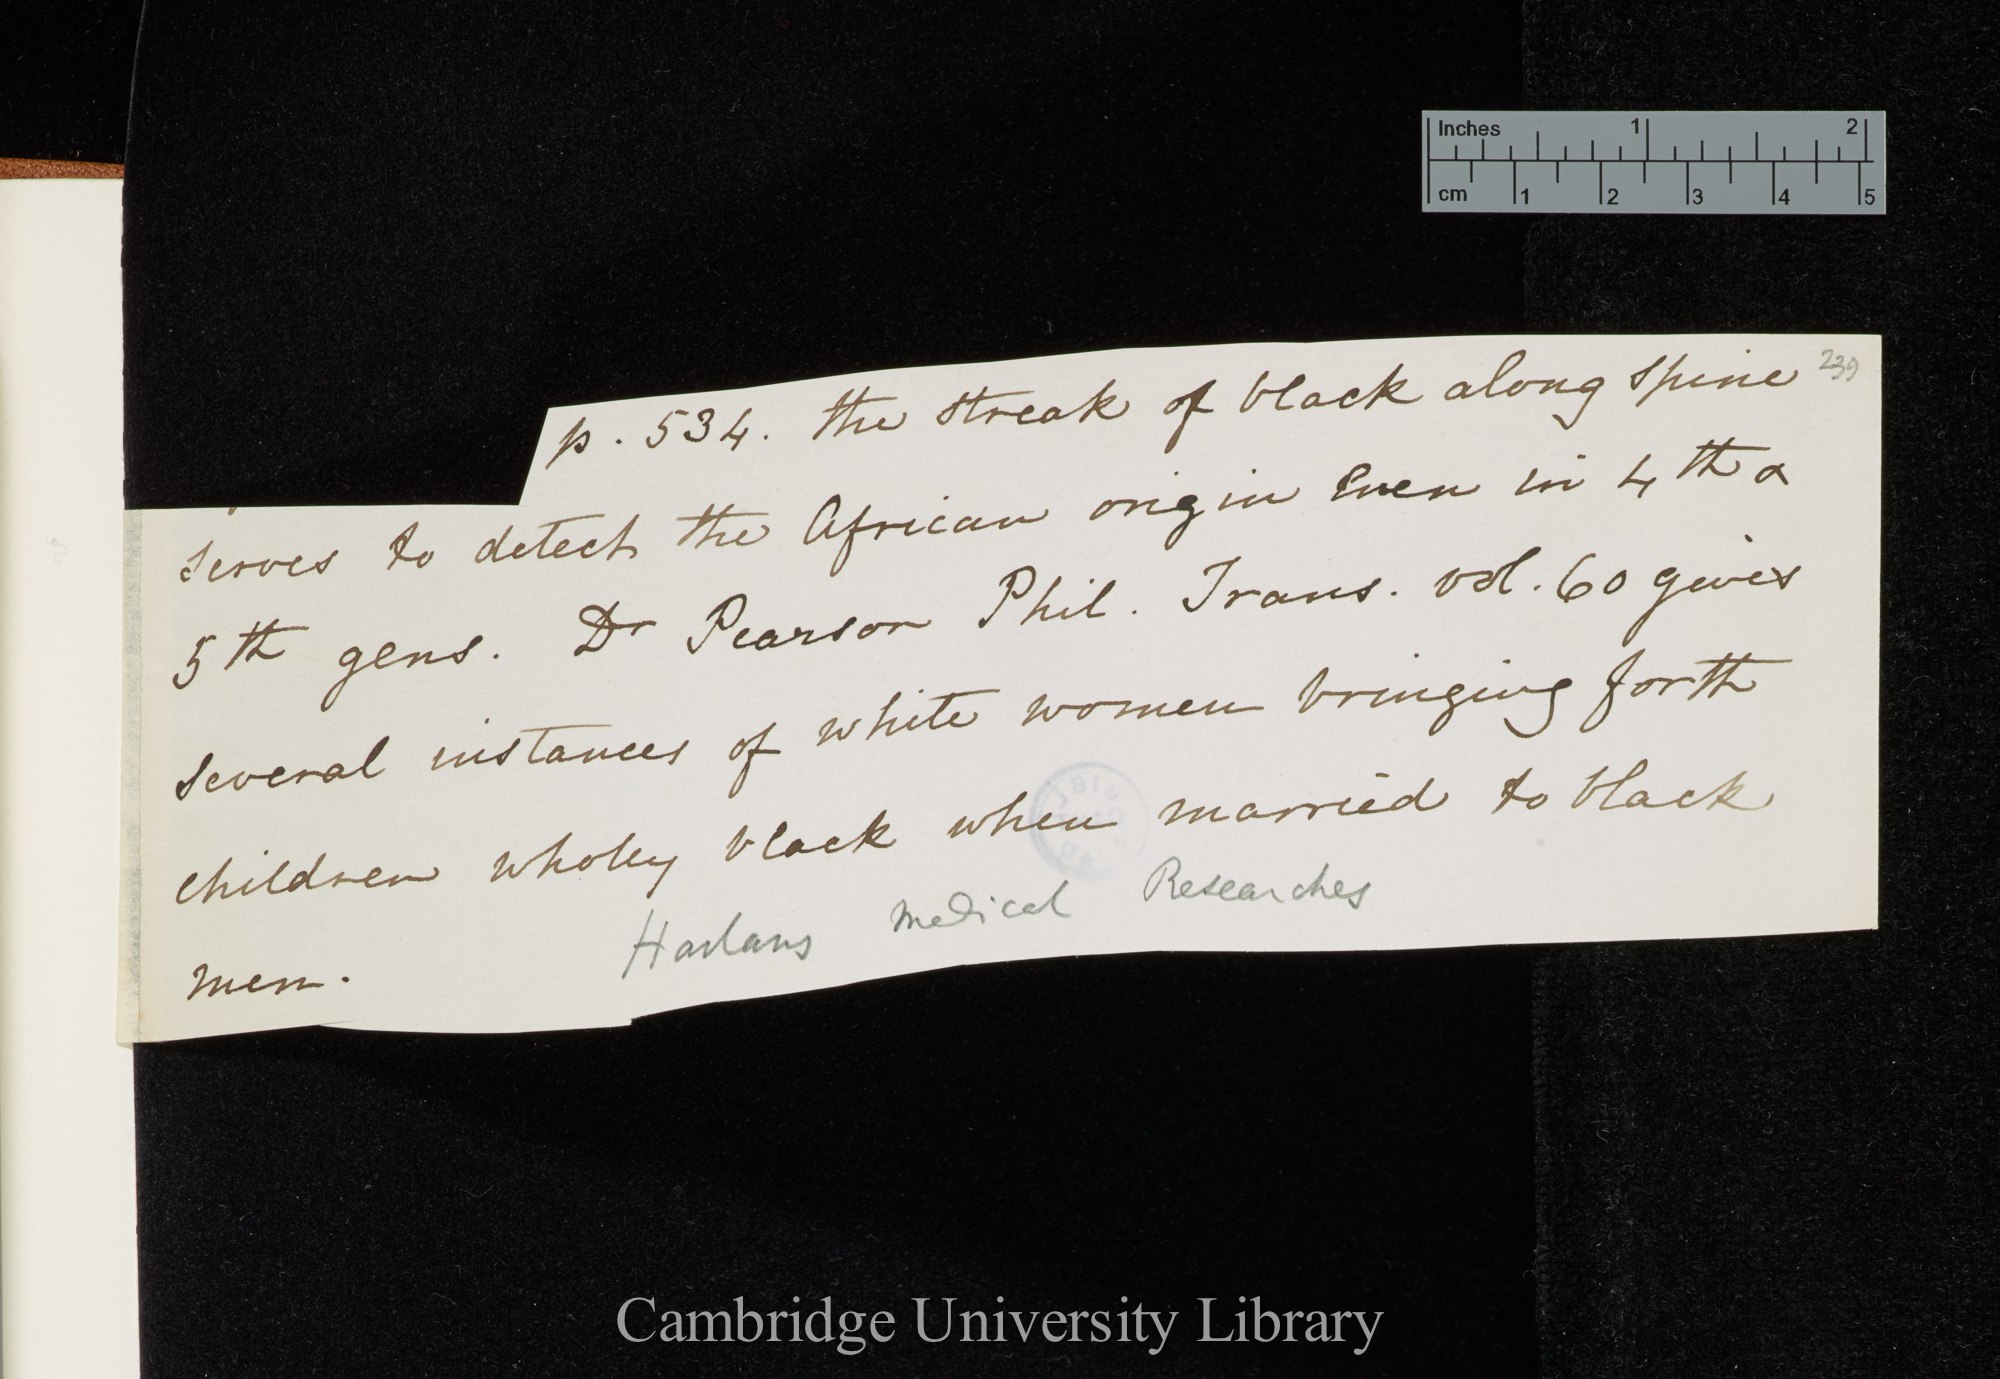 Inches 1 2
cm 1 2 3 4 5
239
p. 534. the streak of black along spine
serves to detect the African origin even in 4th &
5th gens. Dr Pearson Phil. Trans. vol. 60 gives
several instances of white women bringing forth
children wholly black when married to black
men.
Harlans Medical Researches
Cambridge University Library